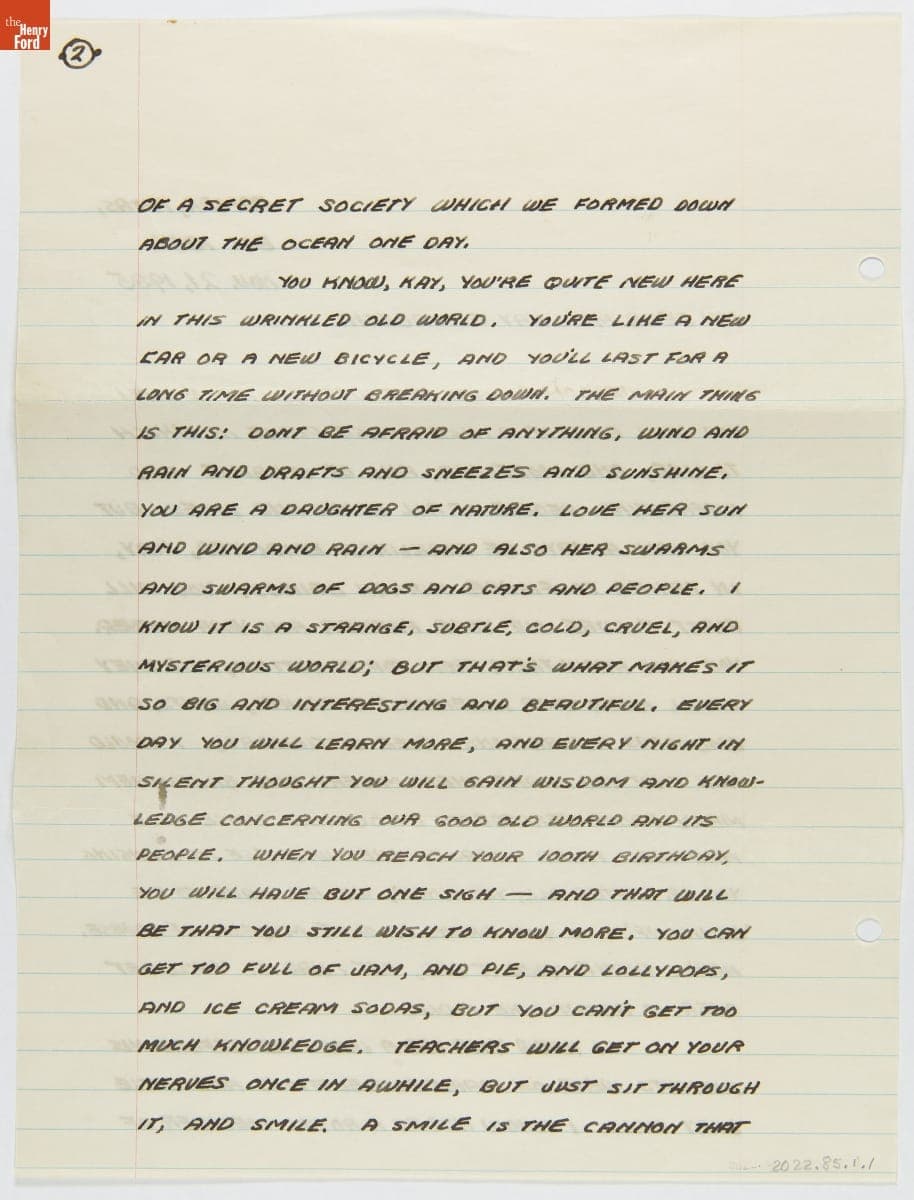 the
Henry
Ford
2
OF A SECRET SOCIETY WHICH WE FORMED DOWN
ABOUT THE OCEAN ONE DAY.
YOU KNOW, KAY, YOU'RE QUITE NEW HERE
IN THIS WRINKLED OLD WORLD. YOU'RE LIKE A NEW
CAR OR A NEW BICYCLE, AND YOU'LL LAST FOR A
LONG TIME WITHOUT BREAKING DOWN. THE MAIN THING
IS THIS: DONT BE AFRAID OF ANYTHING, WIND AND
RAIN AND DRAFTS AND SNEEZES AND SUNSHINE.
YOU ARE A DAUGHTER OF NATURE. LOVE HER SUN
AND WIND AND RAIN — AND ALSO HER SWARMS
AND SWARMS OF DOGS AND CATS AND PEOPLE. I
KNOW IT IS A STRANGE, SUBTLE, COLD, CRUEL, AND
MYSTERIOUS WORLD; BUT THAT'S WHAT MAKES IT
SO BIG AND INTERESTING AND BEAUTIFUL. EVERY
DAY YOU WILL LEARN MORE, AND EVERY NIGHT IN
SILENT THOUGHT YOU WILL GAIN WISDOM AND KNOW-
LEDGE CONCERNING OUR GOOD OLD WORLD AND ITS
PEOPLE. WHEN YOU REACH YOUR 100TH BIRTHDAY,
YOU WILL HAVE BUT ONE SIGH — AND THAT WILL
BE THAT YOU STILL WISH TO KNOW MORE. YOU CAN
GET TOO FULL OF JAM, AND PIE, AND LOLLYPOPS,
AND ICE CREAM SODAS, BUT YOU CAN'T GET TOO
MUCH KNOWLEDGE. TEACHERS WILL GET ON YOUR
NERVES ONCE IN AWHILE, BUT JUST SIT THROUGH
IT, AND SMILE. A SMILE IS THE CANNON THAT
2022.85.1.1